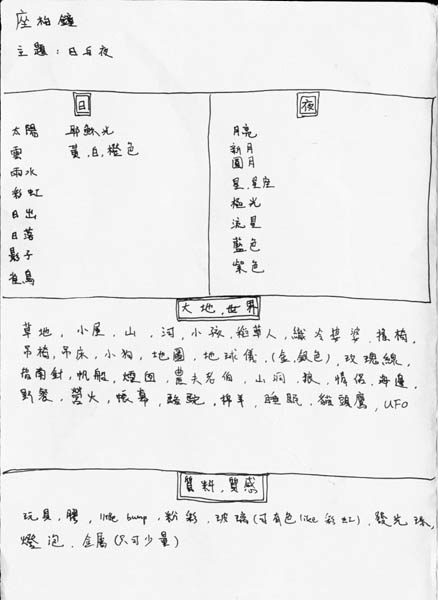 座枱鐘
主題：日与夜
日
太陽 耶穌光
雲 黃，白，橙色
雨水
彩虹
日出
日落
影子
雀鳥
夜
月亮
新月
圓月
星，星座
極光
流星
藍色
紫色
大地，世界
草地，小屋，山，河，小孩，稻草人，纖公婆婆，搖椅，
吊椅，吊床，小狗，地圖，地球儀，(金，銀色)，玫瑰線，
指南針，帆船，煙囪，農夫名伯，山洞，狼，情侶，海邊，
野餐，螢火，帳幕，駱駝，棉羊，睡眠，貓頭鷹，UFO
質料，質感
玩具，膠，little bump，粉彩，玻璃(可有色like彩虹)，發光珠，
燈泡，金屬(只可少量)